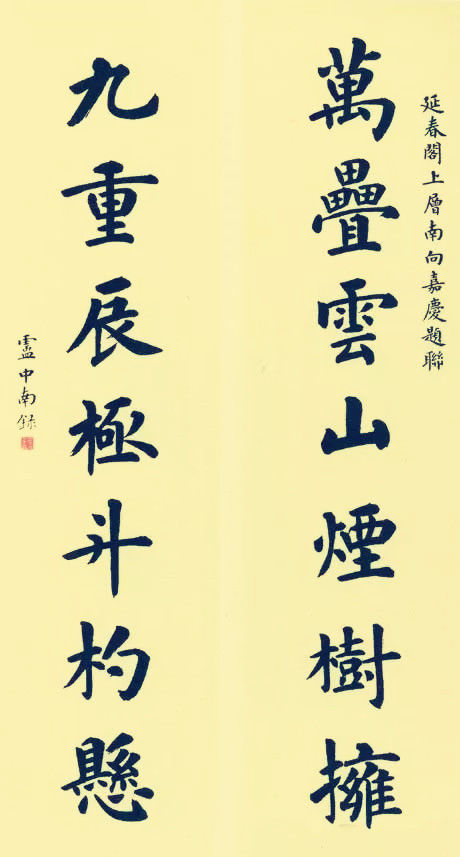 延春閣上層南向嘉慶題聯
萬疊雲山煙樹擁
九重辰極斗杓懸
盧中南録